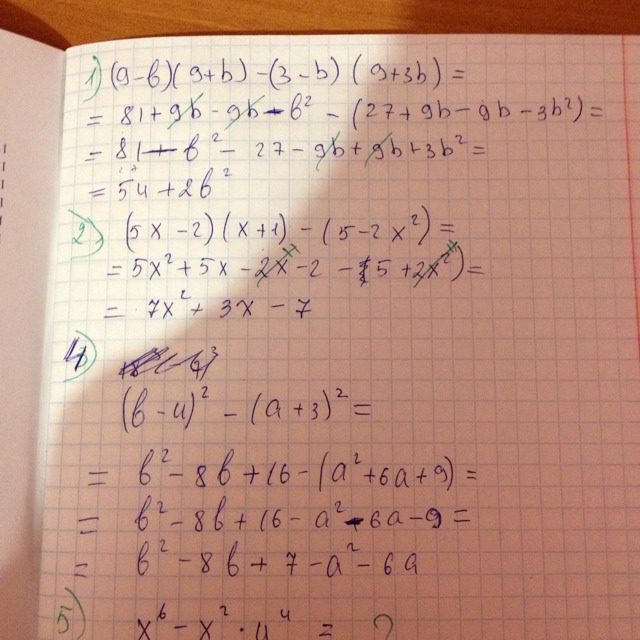 1) (9-b)(9+b)-(3-b)(9+3b)=
= 81+9b-9b-b² - (27+9b-9b-3b²)=
= 81-b²-27-9b+9b+3b²=
= 54+2b²
2) (5x-2)(x+1)-(5-2x²)=
= 5x²+5x-2x-2-5+2x²)=
= 7x²+3x-7
4)
(b-4)²-(a+3)²=
= b²-8b+16-(a²+6a+9)=
= b²-8b+16-a²-6a-9=
= b²-8b+7-a²-6a
5) x⁶-x²·4⁴ = ?